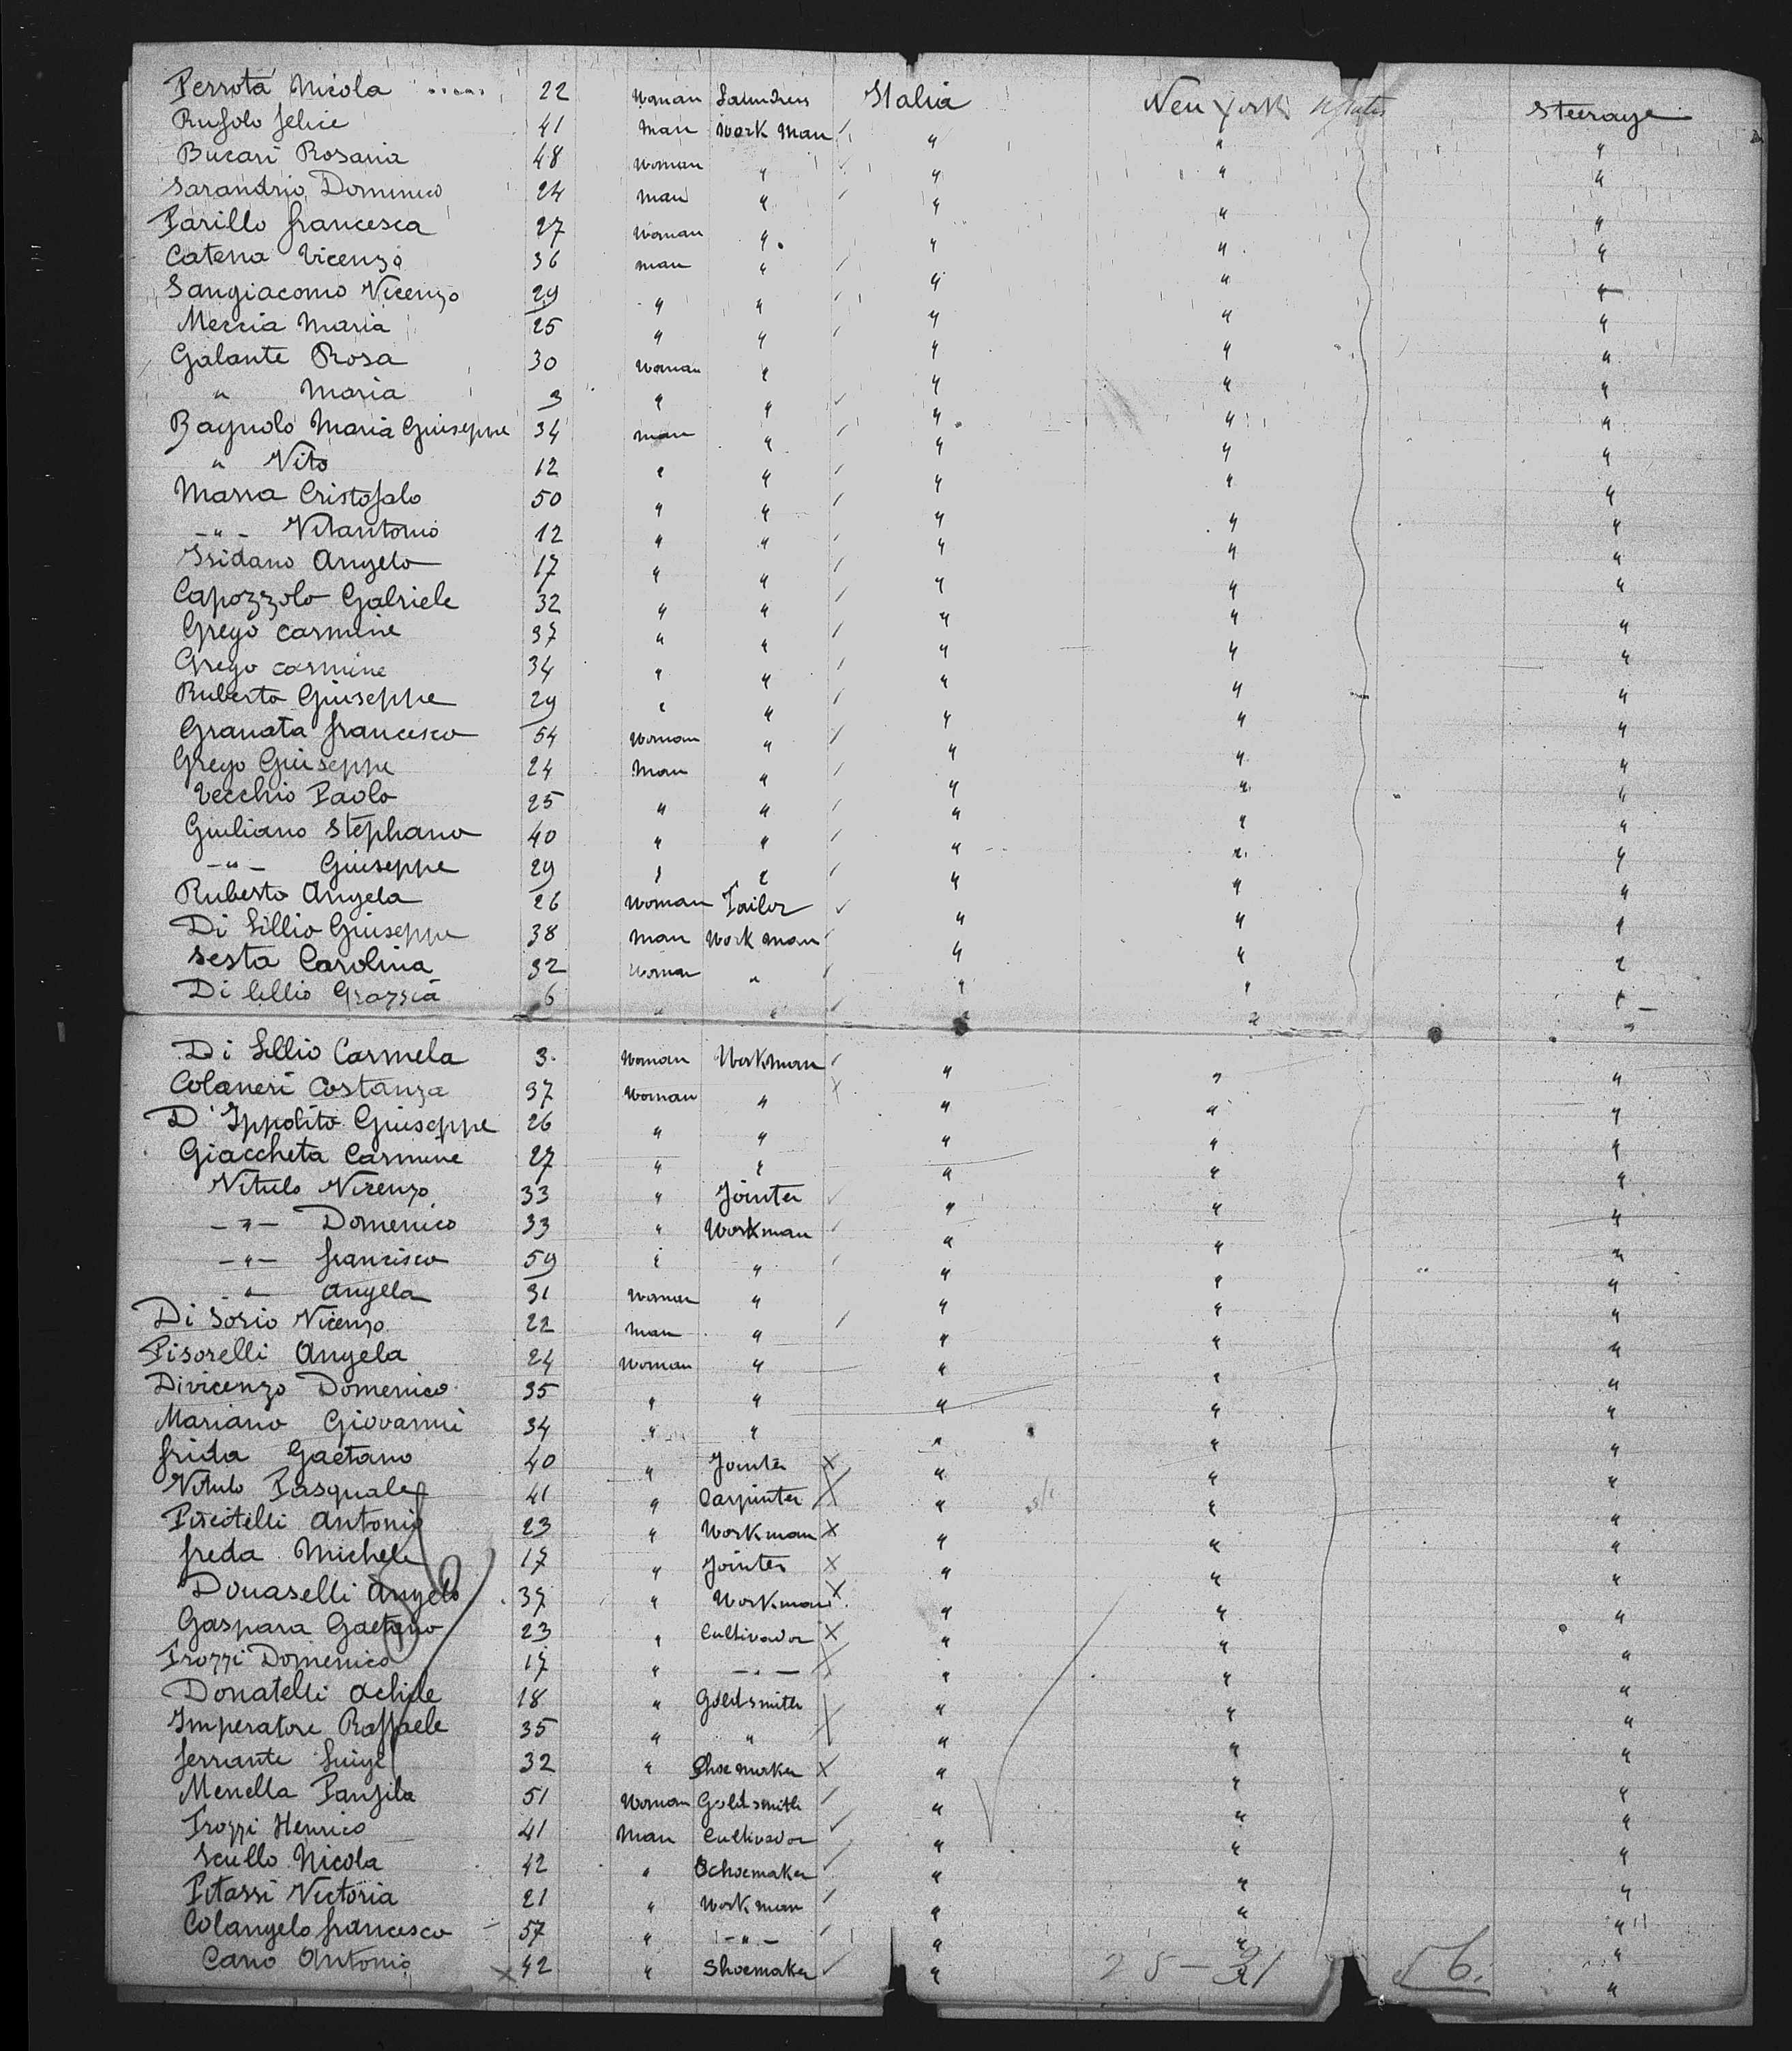 Perrota Nicola 22 Woman Laundress Italia New York Steerage
Rufolo felice 41 Man Work Man " " "
Bucari Rosaria 48 Woman " " " "
Sarandrio Dominico 24 Man " " " "
Parillo francesca 27 Woman " " " "
Catena Vicenzo 36 man " " " "
Sangiacomo Vicenzo 29 " " " " "
Meccia Maria 25 " " " " "
Galante Rosa 30 Woman " " " "
" Maria 3 " " " " "
Bagnolo Maria Guiseppe 34 man " " " "
" Vito 12 " " " " "
Massa Cristofalo 50 " " " " "
-"- Vitantonio 12 " " " " "
Isidano Angelo 17 " " " " "
Capozzolo Gabriele 32 " " " " "
Grego Carmine 37 " " " " "
Grego Carmine 34 " " " " "
Ruberto Giuseppe 29 " " " " "
Granata francesco 54 Woman " " " "
Grego Giuseppe 24 Man " " " "
Vecchio Paolo 25 " " " " "
Giuliano Stephano 40 " " " " "
-"- Giuseppe 29 " " " " "
Ruberto Angela 26 Woman Tailor " " "
Di Lillio Giuseppe 38 Man Work man " " "
Sesta Carolina 32 Woman " " " "
Di Lillio Grazzia 6 " " " " "
Di Lillio Carmela 3 Woman Workman " " "
Colaneri Costanza 37 Woman " " " "
D'Ippolito Giuseppe 26 " " " " "
Giaccheta Carmine 27 " " " " "
Vitulo Vicenzo 33 " Jointer " " "
-"- Domenico 33 " Workman " " "
-"- francisco 59 " " " " "
-"- Angela 31 Woman " " " "
Di Sorio Vicenzo 22 Man " " " "
Pisorelli Angela 24 Woman " " " "
Divicenzo Domenico 35 " " " " "
Mariano Giovanni 34 " " " " "
frida Gaetano 40 " Jointer X " " "
Vitulo Pasquale 41 " Carpinter X " " "
Piscitelli Antonio 23 " Workman X " " "
freda Michele 17 " Jointer X " " "
Donaselli Angelo 37 " Workman X " " "
Gaspara Gaetano 23 " Cultivador X " " "
Trozzi Domenico 17 " -"- X " " "
Donatelli Achile 18 " Goldsmith " " "
Imperatore Raffaele 35 " " " " "
ferrante Luigi 32 " Shoemaker X " " "
Menella Panfila 51 Woman Goldsmith " " "
Trozzi Henrico 41 Man Cultivador " " "
Scullo Nicola 42 " Schoemaker " " "
Pitassi Victoria 21 " Work man " " "
Colangelo francesco 57 " -"- " " "
Cano Antonio X 42 " Shoemaker " " "
25-31